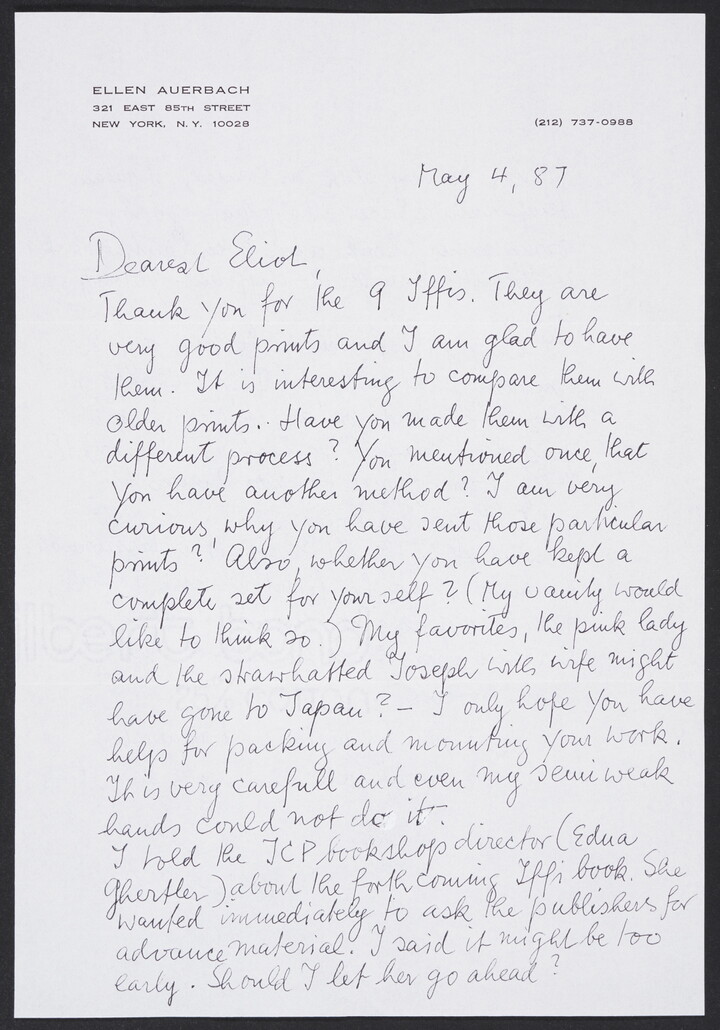 ELLEN AUERBACH
321 EAST 85TH STREET
NEW YORK, N.Y. 10028
(212) 737-0988
May 4, 87
Dearest Eliot,
Thank you for the 9 Iffis. They are
very good prints and I am glad to have
them. It is interesting to compare them with
older prints.. Have you made them with a
different process? You mentioned once, that
you have another method? I am very
curious, why you have sent those particular
prints? Also, whether you have kept a
complete set for yourself? (My vanity would
like to think so.) My favorites, the pink lady
and the strawhatted Joseph with wife might
have gone to Japan? – I only hope you have
help for packing and mounting your work.
It is very carefull and even my semi weak
hands could not do it.
I told the ICP bookshop director (Edna
Ghertler) about the forthcoming Iffi book. She
wanted immediately to ask the publishers for
advance material. I said it might be too
early. Should I let her go ahead?